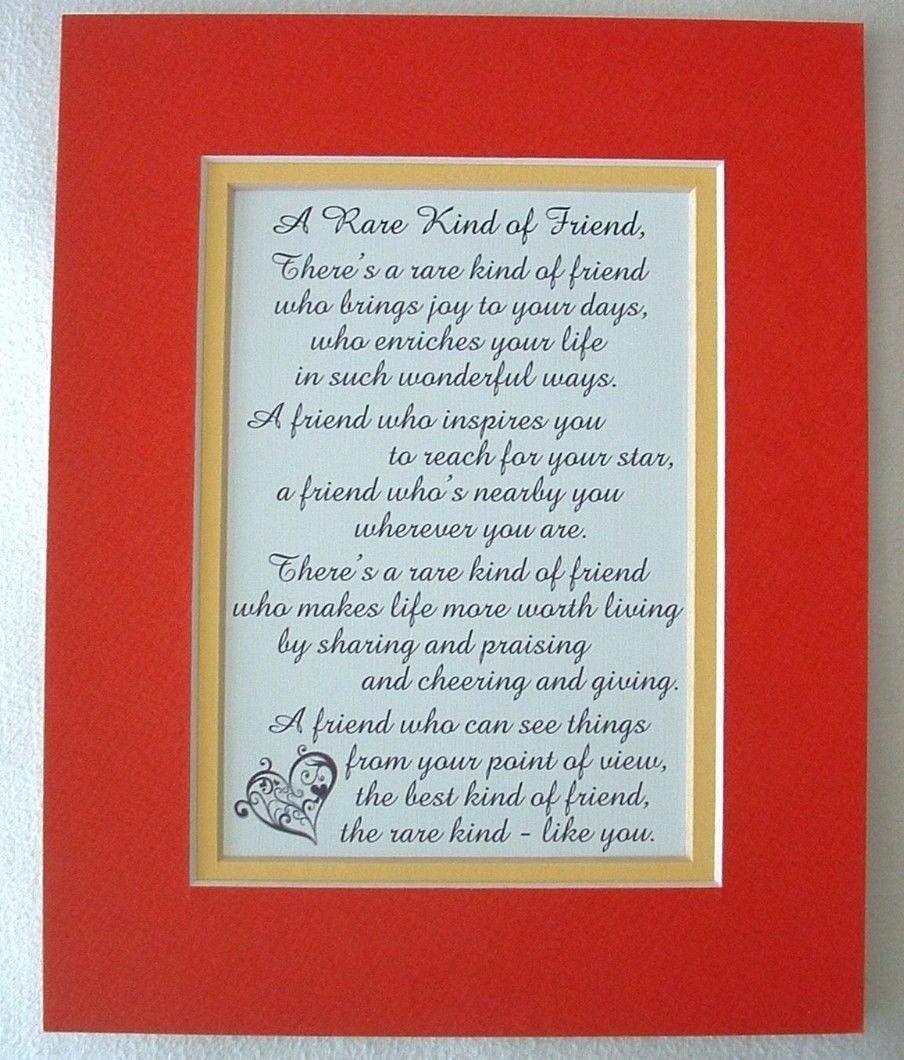 A Rare Kind of Friend,
There's a rare kind of friend
who brings joy to your days,
who enriches your life
in such wonderful ways.
A friend who inspires you
to reach for your star,
a friend who's nearby you
wherever you are.
There's a rare kind of friend
who makes life more worth living
by sharing and praising
and cheering and giving.
A friend who can see things
from your point of view,
the best kind of friend,
the rare kind - like you.